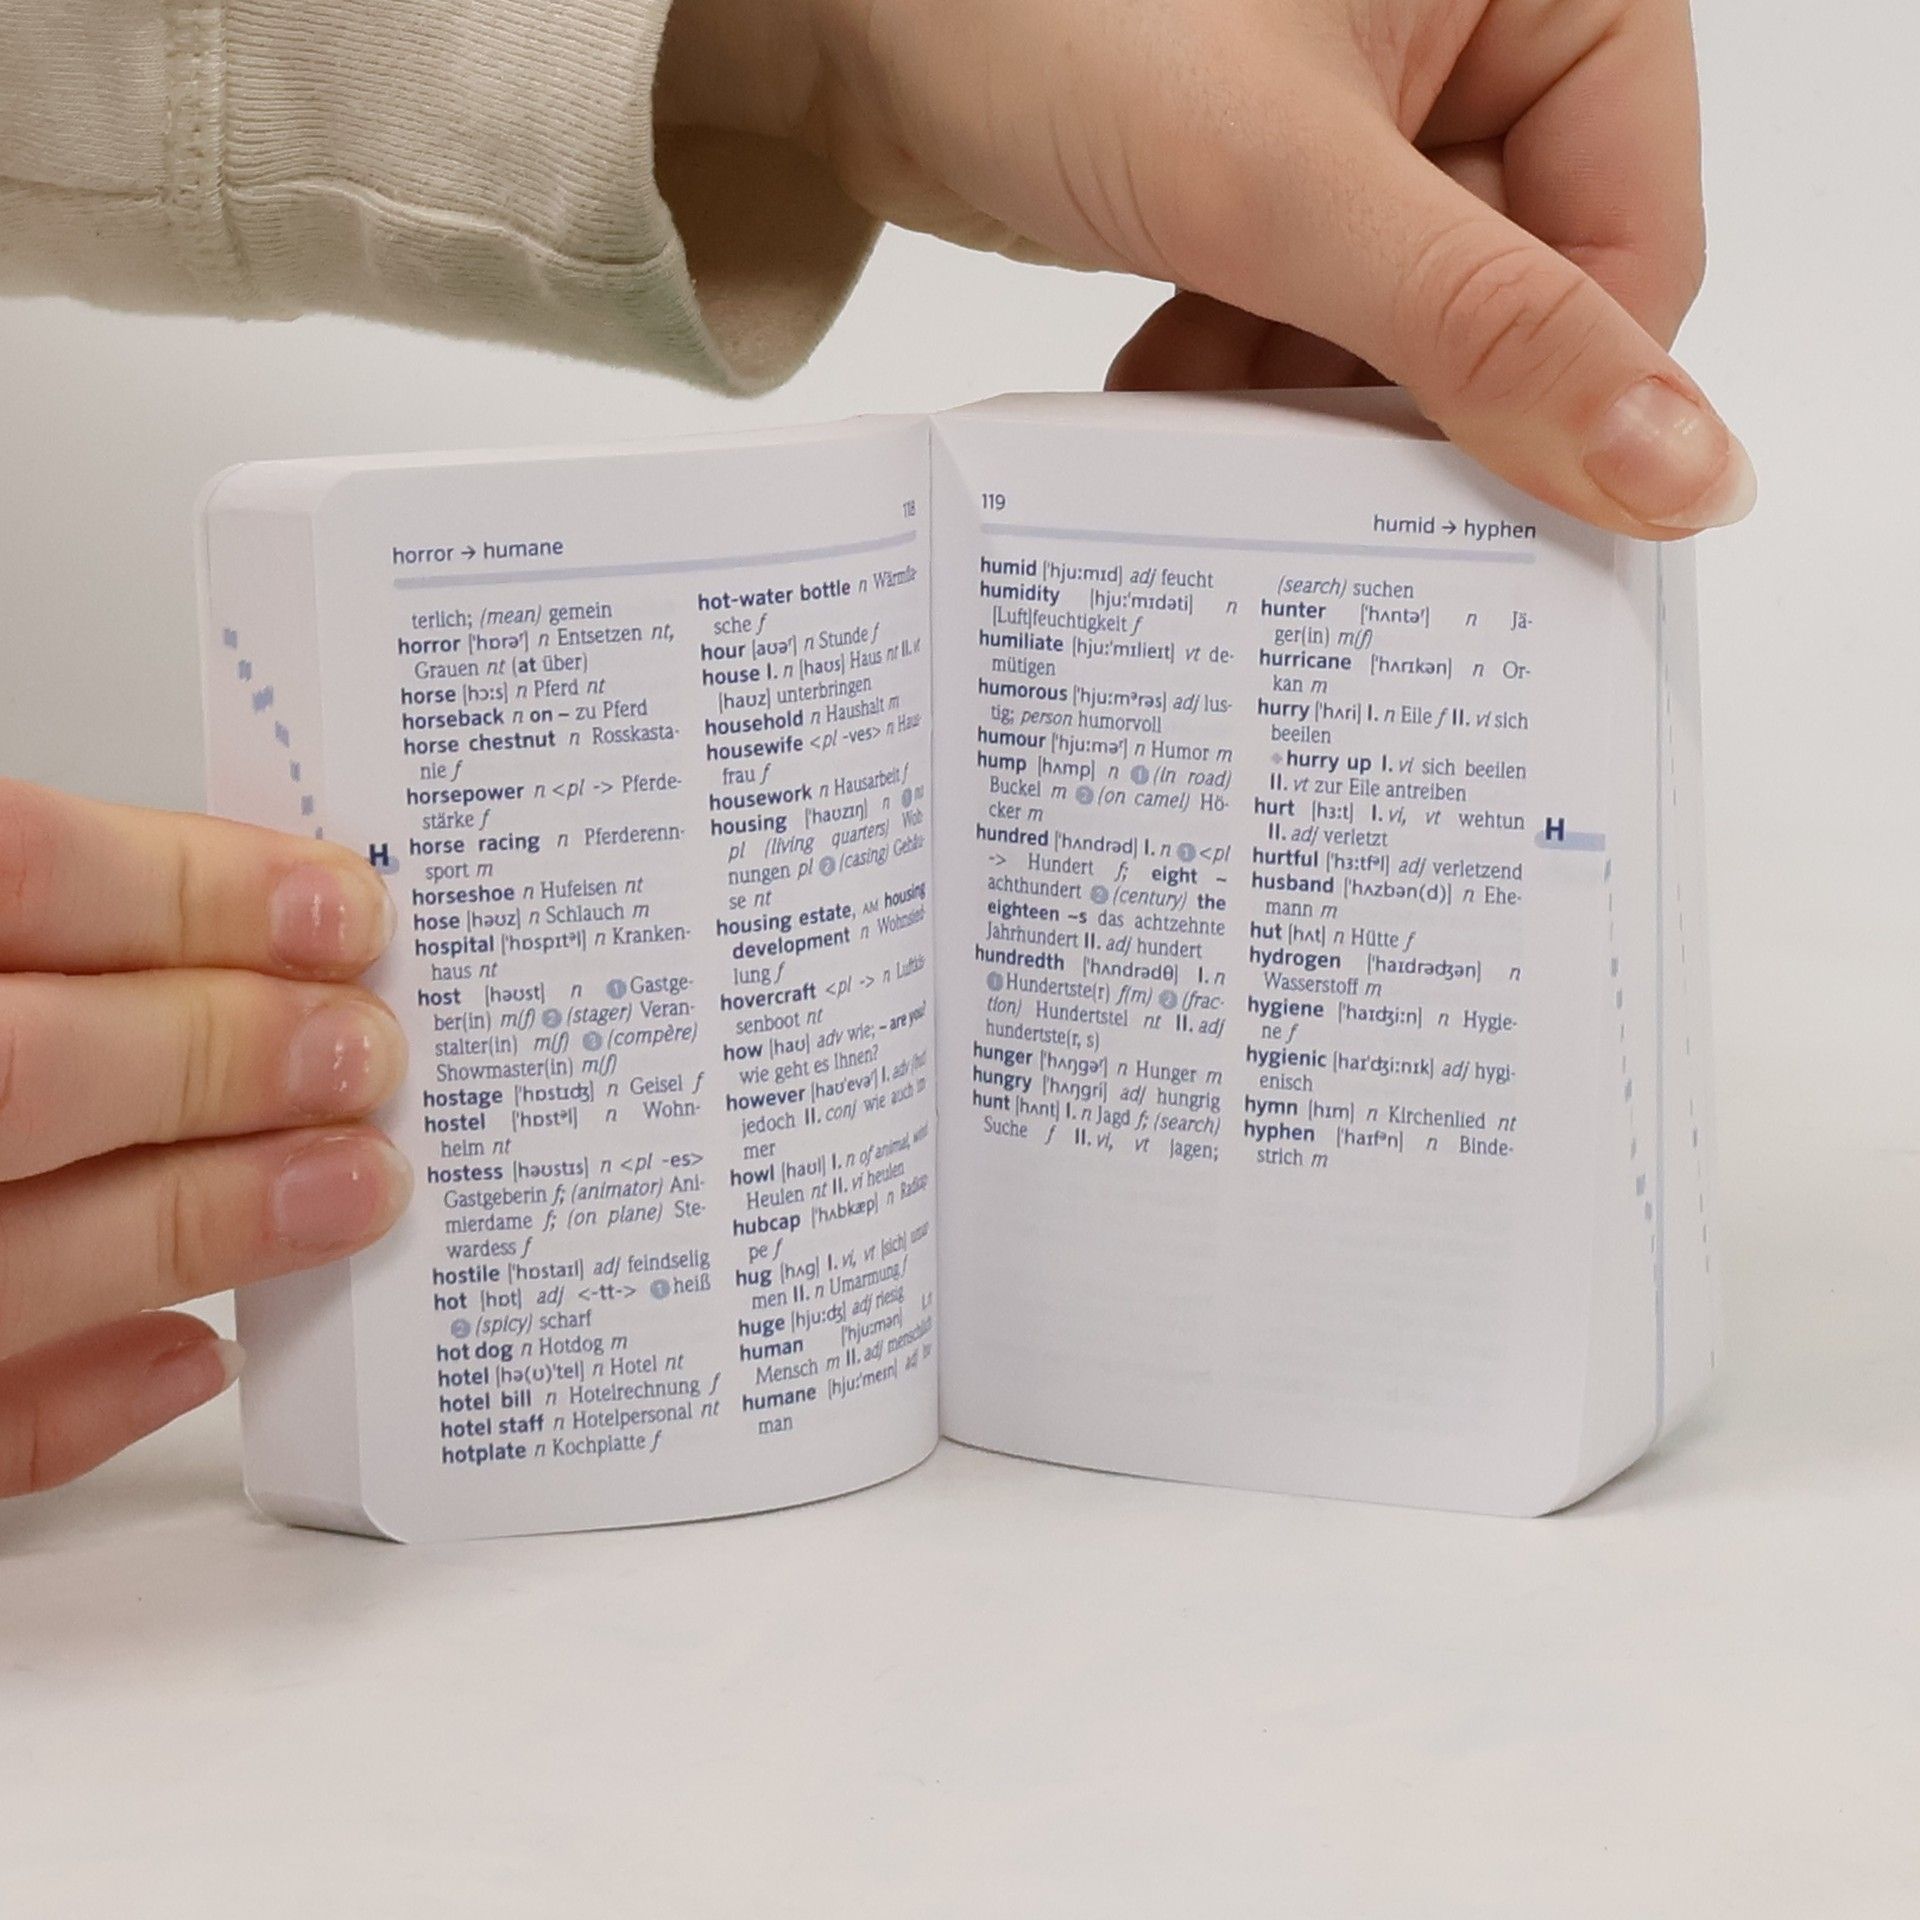 118
horror → humane
terlich; (mean) gemein
horror ['hɒrəʳ] n Entsetzen nt,
Grauen nt (at über)
horse [hɔ:s] n Pferd nt
horseback n on – zu Pferd
horse chestnut n Rosskasta-
nie f
horsepower n <pl -> Pferde-
stärke f
horse racing n Pferderenn-
sport m
horseshoe n Hufeisen nt
hose [həʊz] n Schlauch m
hospital ['hɒspɪtᵊl] n Kranken-
haus nt
host [həʊst] n ❶ Gastge-
ber(in) m(f) ❷ (stager) Veran-
stalter(in) m(f) ❸ (compère)
Showmaster(in) m(f)
hostage ['hɒstɪdʒ] n Geisel f
hostel ['hɒstᵊl] n Wohn-
heim nt
hostess [həʊstɪs] n <pl -es>
Gastgeberin f; (animator) Ani-
mierdame f; (on plane) Ste-
wardess f
hostile ['hɒstaɪl] adj feindselig
hot [hɒt] adj <-tt-> ❶ heiß
❷ (spicy) scharf
hot dog n Hotdog m
hotel [hə(ʊ)'tel] n Hotel nt
hotel bill n Hotelrechnung f
hotel staff n Hotelpersonal nt
hotplate n Kochplatte f
H
hot-water bottle n Wärmfla-
sche f
hour [aʊəʳ] n Stunde f
house I. n [haʊs] Haus nt II. vt
[haʊz] unterbringen
household n Haushalt m
housewife <pl -ves> n Haus-
frau f
housework n Hausarbeit f
housing ['haʊzɪŋ] n ❶ no
pl (living quarters) Woh
nungen pl ❷ (casing) Gehäu-
se nt
housing estate, AM housing
development n Wohnsied-
lung f
hovercraft <pl -> n Luftkis-
senboot nt
how [haʊ] adv wie; – are you?
wie geht es Ihnen?
however [haʊ'evəʳ] I. adv (but)
jedoch II. conj wie auch im
mer
howl [haʊl] I. n of animal, wind
Heulen nt II. vi heulen
hubcap ['hʌbkæp] n Radkap
pe f
hug [hʌg] I. vi, vt [sich] umar
men II. n Umarmung f
huge [hju:dʒ] adj riesig
human ['hju:mən] I. n
Mensch m II. adj menschlich
humane [hju:'meɪn] adj hu
man
119
humid → hyphen
humid ['hju:mɪd] adj feucht
humidity [hju:'mɪdəti] n
[Luft]feuchtigkeit f
humiliate [hju:'mɪlieɪt] vt de-
mütigen
humorous ['hju:mᵊrəs] adj lus-
tig; person humorvoll
humour ['hju:məʳ] n Humor m
hump [hʌmp] n ❶ (in road)
Buckel m ❷ (on camel) Hö-
cker m
hundred ['hʌndrəd] I. n ❶ <pl
-> Hundert f; eight –
achthundert ❷ (century) the
eighteen –s das achtzehnte
Jahrhundert II. adj hundert
hundredth ['hʌndrədθ] I. n
❶ Hundertste(r) f(m) ❷ (frac-
tion) Hundertstel nt II. adj
hundertste(r, s)
hunger ['hʌŋgəʳ] n Hunger m
hungry ['hʌŋgri] adj hungrig
hunt [hʌnt] I. n Jagd f; (search)
Suche f II. vi, vt jagen;
(search) suchen
hunter ['hʌntəʳ] n Jä-
ger(in) m(f)
hurricane ['hʌrɪkən] n Or-
kan m
hurry ['hʌri] I. n Eile f II. vi sich
beeilen
◆ hurry up I. vi sich beeilen
II. vt zur Eile antreiben
hurt [hɜ:t] I. vi, vt wehtun
II. adj verletzt
hurtful ['hɜ:tfᵊl] adj verletzend
husband ['hʌzbən(d)] n Ehe-
mann m
hut [hʌt] n Hütte f
hydrogen ['haɪdrədʒən] n
Wasserstoff m
hygiene ['haɪdʒi:n] n Hygie-
ne f
hygienic [haɪ'dʒi:nɪk] adj hygi-
enisch
hymn [hɪm] n Kirchenlied nt
hyphen ['haɪfᵊn] n Binde-
strich m
H